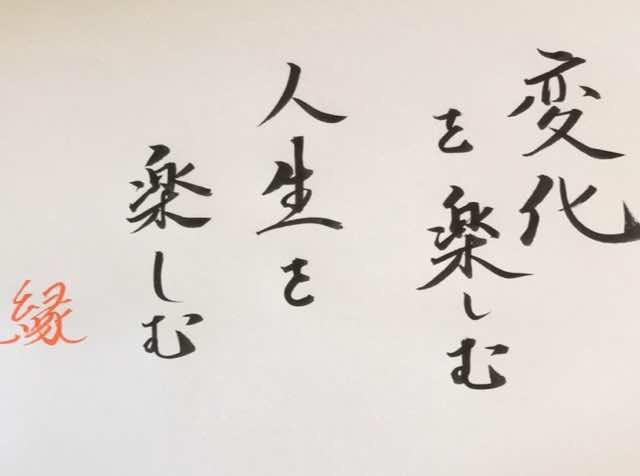 変化
を楽しむ
人生を
楽しむ
縁